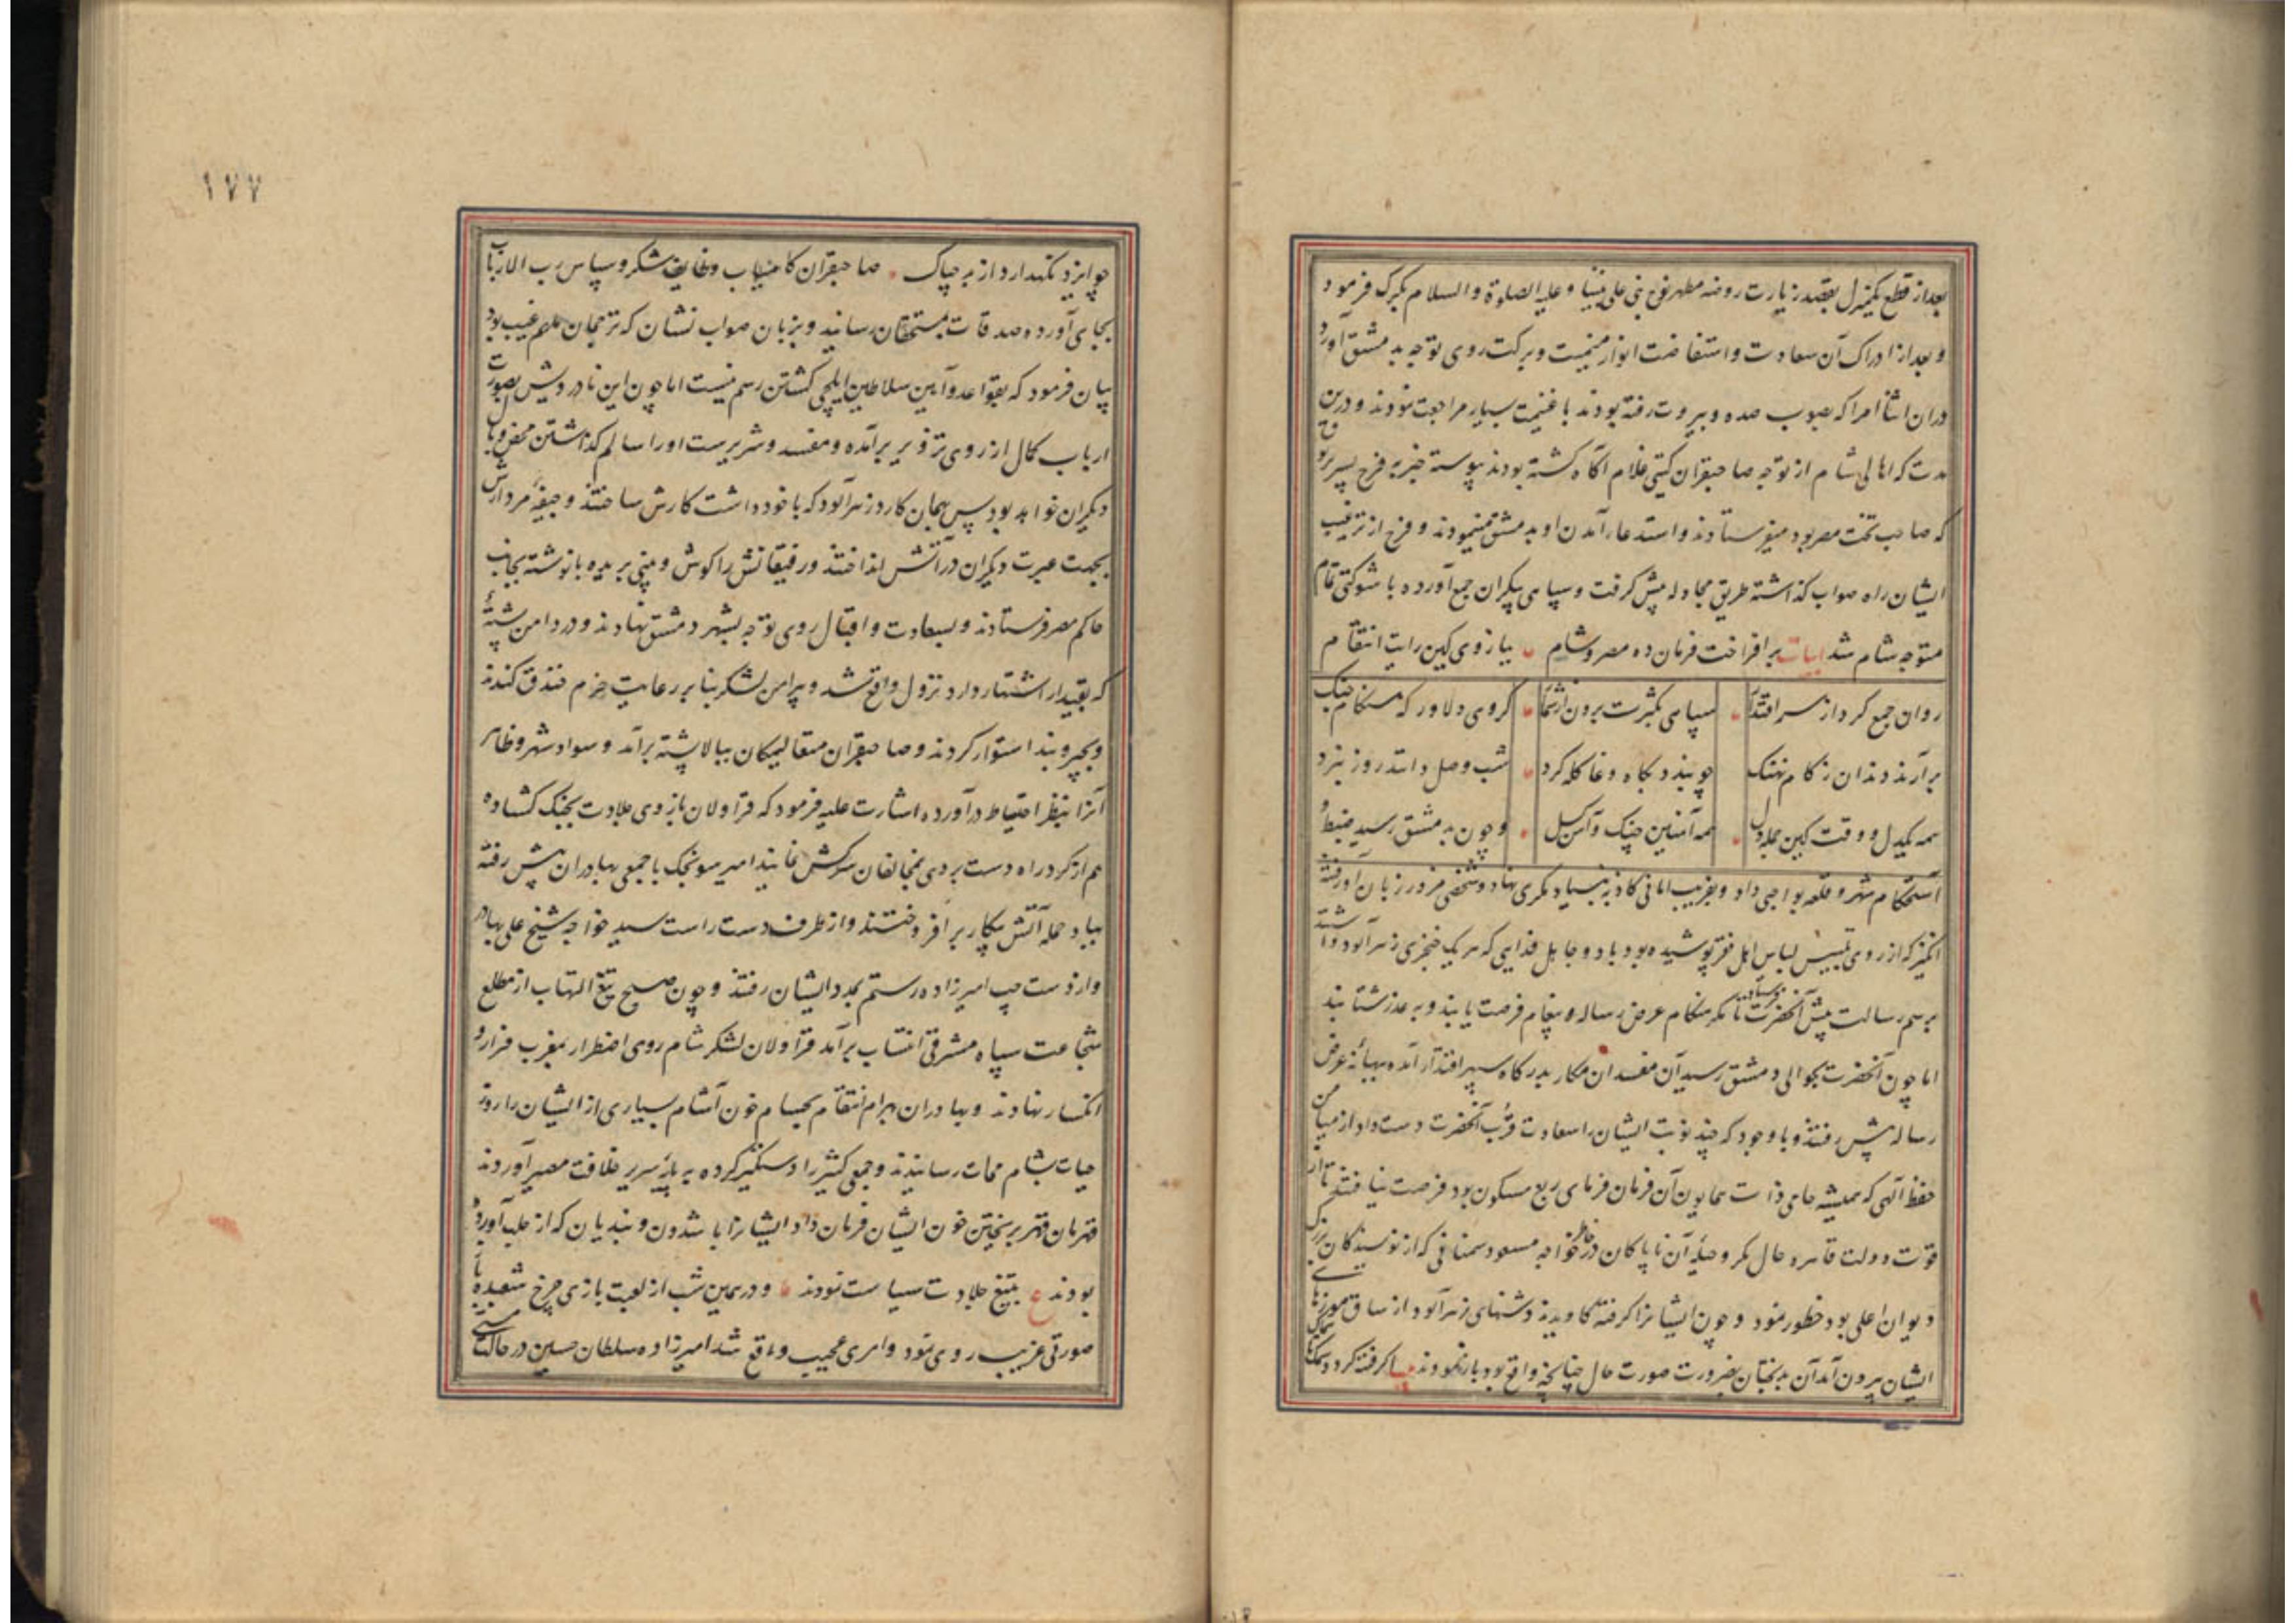 بعد از قطع یکمنزل بقصد زیارت روضه مطهر نوح نبی علی نبینا و علیه الصلوة والسلام بکرک فرمود
و بعد از ادراک آن سعادت و استفاضت انوار میمنت و برکت روی توجه بدمشق آورد
دران اثنا امرا که بصوب صیده و بیروت رفته بودند با غنیمت بسیار مراجعت نمودند و درین
مدت که اهالی شام از توجه صاحبقران گیتی غلام آگاه کشته بودند پیوسته خبر به فرخ پسر برقوق
که صاحب تخت مصر بود میفرستادند و استدعاء آمدن او بدمشق مینمودند و فرخ از ترغیب
ایشان راه صواب کذاشته طریق مجادله پیش کرفت و سپاهی بیکران جمع آورده با شوکتی تمام
متوجه شام شد ابیات برافراخت فرمان ده مصر و شام ببازوی کین رایت انتقام
روان جمع کرد از سر اقتدار سپاهی بکثرت برون از شمار کروهی دلاور که هنکام جنک
برآرند دندان ز کام نهنک چو بیند بکاه وغا کله کرد شب وصل دانند روز نبرد
همه یکدل و وقت کین جمله دل همه آهنین چنک و آهن کسل و چون بدمشق رسید ضبط و
استحکام شهر و قلعه بواجبی داد و بفریب امانی کاذبه بنیاد مکری نهاد و شخصی مزور زبان آور فتنه
انکیز که از روی تلبیس لباس اهل فقر پوشیده بود با دو جاهل فدایی که هر یک خنجری زهرآلود داشتند
برسم رسالت پیش آنحضرت فرستاد تا مکر هنکام عرض رساله و پیغام فرصت یابند و به عذر شتابند
اما چون آنحضرت بحوالی دمشق رسید آن مفسدان مکار بدرکاه سپهر اقتدار آمده ببهانه عرض
رساله پیش رفتند و با وجود که چند نوبت ایشان را سعادت قرب آنحضرت دست داد از میامن
حفظ آلهی که همیشه حامی ذات همایون آن فرمان فرمای ربع مسکون بود فرصت نیافتند تا از
قوت دولت قاهره حال مکر و حیله آن ناپاکان در خاطر خواجه مسعود سمنانی که از نویسندکان بزرک
دیوان اعلی بود خطور نمود و چون ایشانرا کرفته کاویدند دشنهای زهرآلود از ساق موزهای
ایشان بیرون آمد آن بدبختان بضرورت صورت حال چنانچه واقع بود باز نمودند
چو ایزد نکهدارد از بد چه باک صاحبقران کامیاب وظایف شکر و سپاس رب الارباب
بجای آورده صدقات بمستحقان رسانید و بزبان صواب نشان که ترجمان ملهم غیب بود
بیان فرمود که بقواعد و آیین سلاطین ایلچی کشتن رسم نیست اما چون این نادرویش بصورت
ارباب کمال از روی تزویر برآمده و مفسد و شریرست او را سالم کذاشتن محض وبال
دیکران خواهد بود پس بهمان کارد زهرآلود که با خود داشت کارش ساختند و جیفه مردارش
بجهت عبرت دیکران در آتش انداختند و رفیقانش را کوش و بینی بریده با نوشته بجانب
حاکم مصر فرستادند و بسعادت و اقبال روی توجه بشهر دمشق نهادند و در دامن پشته
که بقیدار اشتهار دارد نزول واقع شد و پیرامن لشکر بنا بر رعایت حزم خندق کندند
و بچپر و بند استوار کردند و صاحبقران متعالیمکان ببالا پشته برآمد و سواد شهر و ظاهر
آنرا بنظر احتیاط درآورده اشارت علیه فرمود که قراولان بازوی جلادت بجنک کشاده
هم از کرد راه دست بردی بمخالفان سرکش نمایند امیر سونجک با جمعی بهادران پیش رفته
بباد حمله آتش پیکار برافروختند و از طرف دست راست سید خواجه شیخ علی بهادر
و از دست چپ امیرزاده رستم بمدد ایشان رفتند و چون صبح تیغ التهاب از مطلع
شجاعت سپاه مشرقی انتساب برآمد قراولان لشکر شام روی اضطرار بمغرب فرار و
انکسار نهادند و بهادران بهرام انتقام بحسام خون آشام بسیاری از ایشان را روز
حیات بشام ممات رسانیدند و جمعی کثیر را دستکیر کرده به پایه سریر خلافت مصیر آوردند
قهرمان قهر بریختن خون ایشان فرمان داد ایشانرا با شدون و بندیان که از حلب آورده
بودند ع بتیغ جلادت سیاست نمودند و در همین شب از لعبت بازی چرخ شعبده باز
صورتی غریب روی نمود و امری عجیب واقع شد امیرزاده سلطان حسین در حالت مستی
۱۷۷